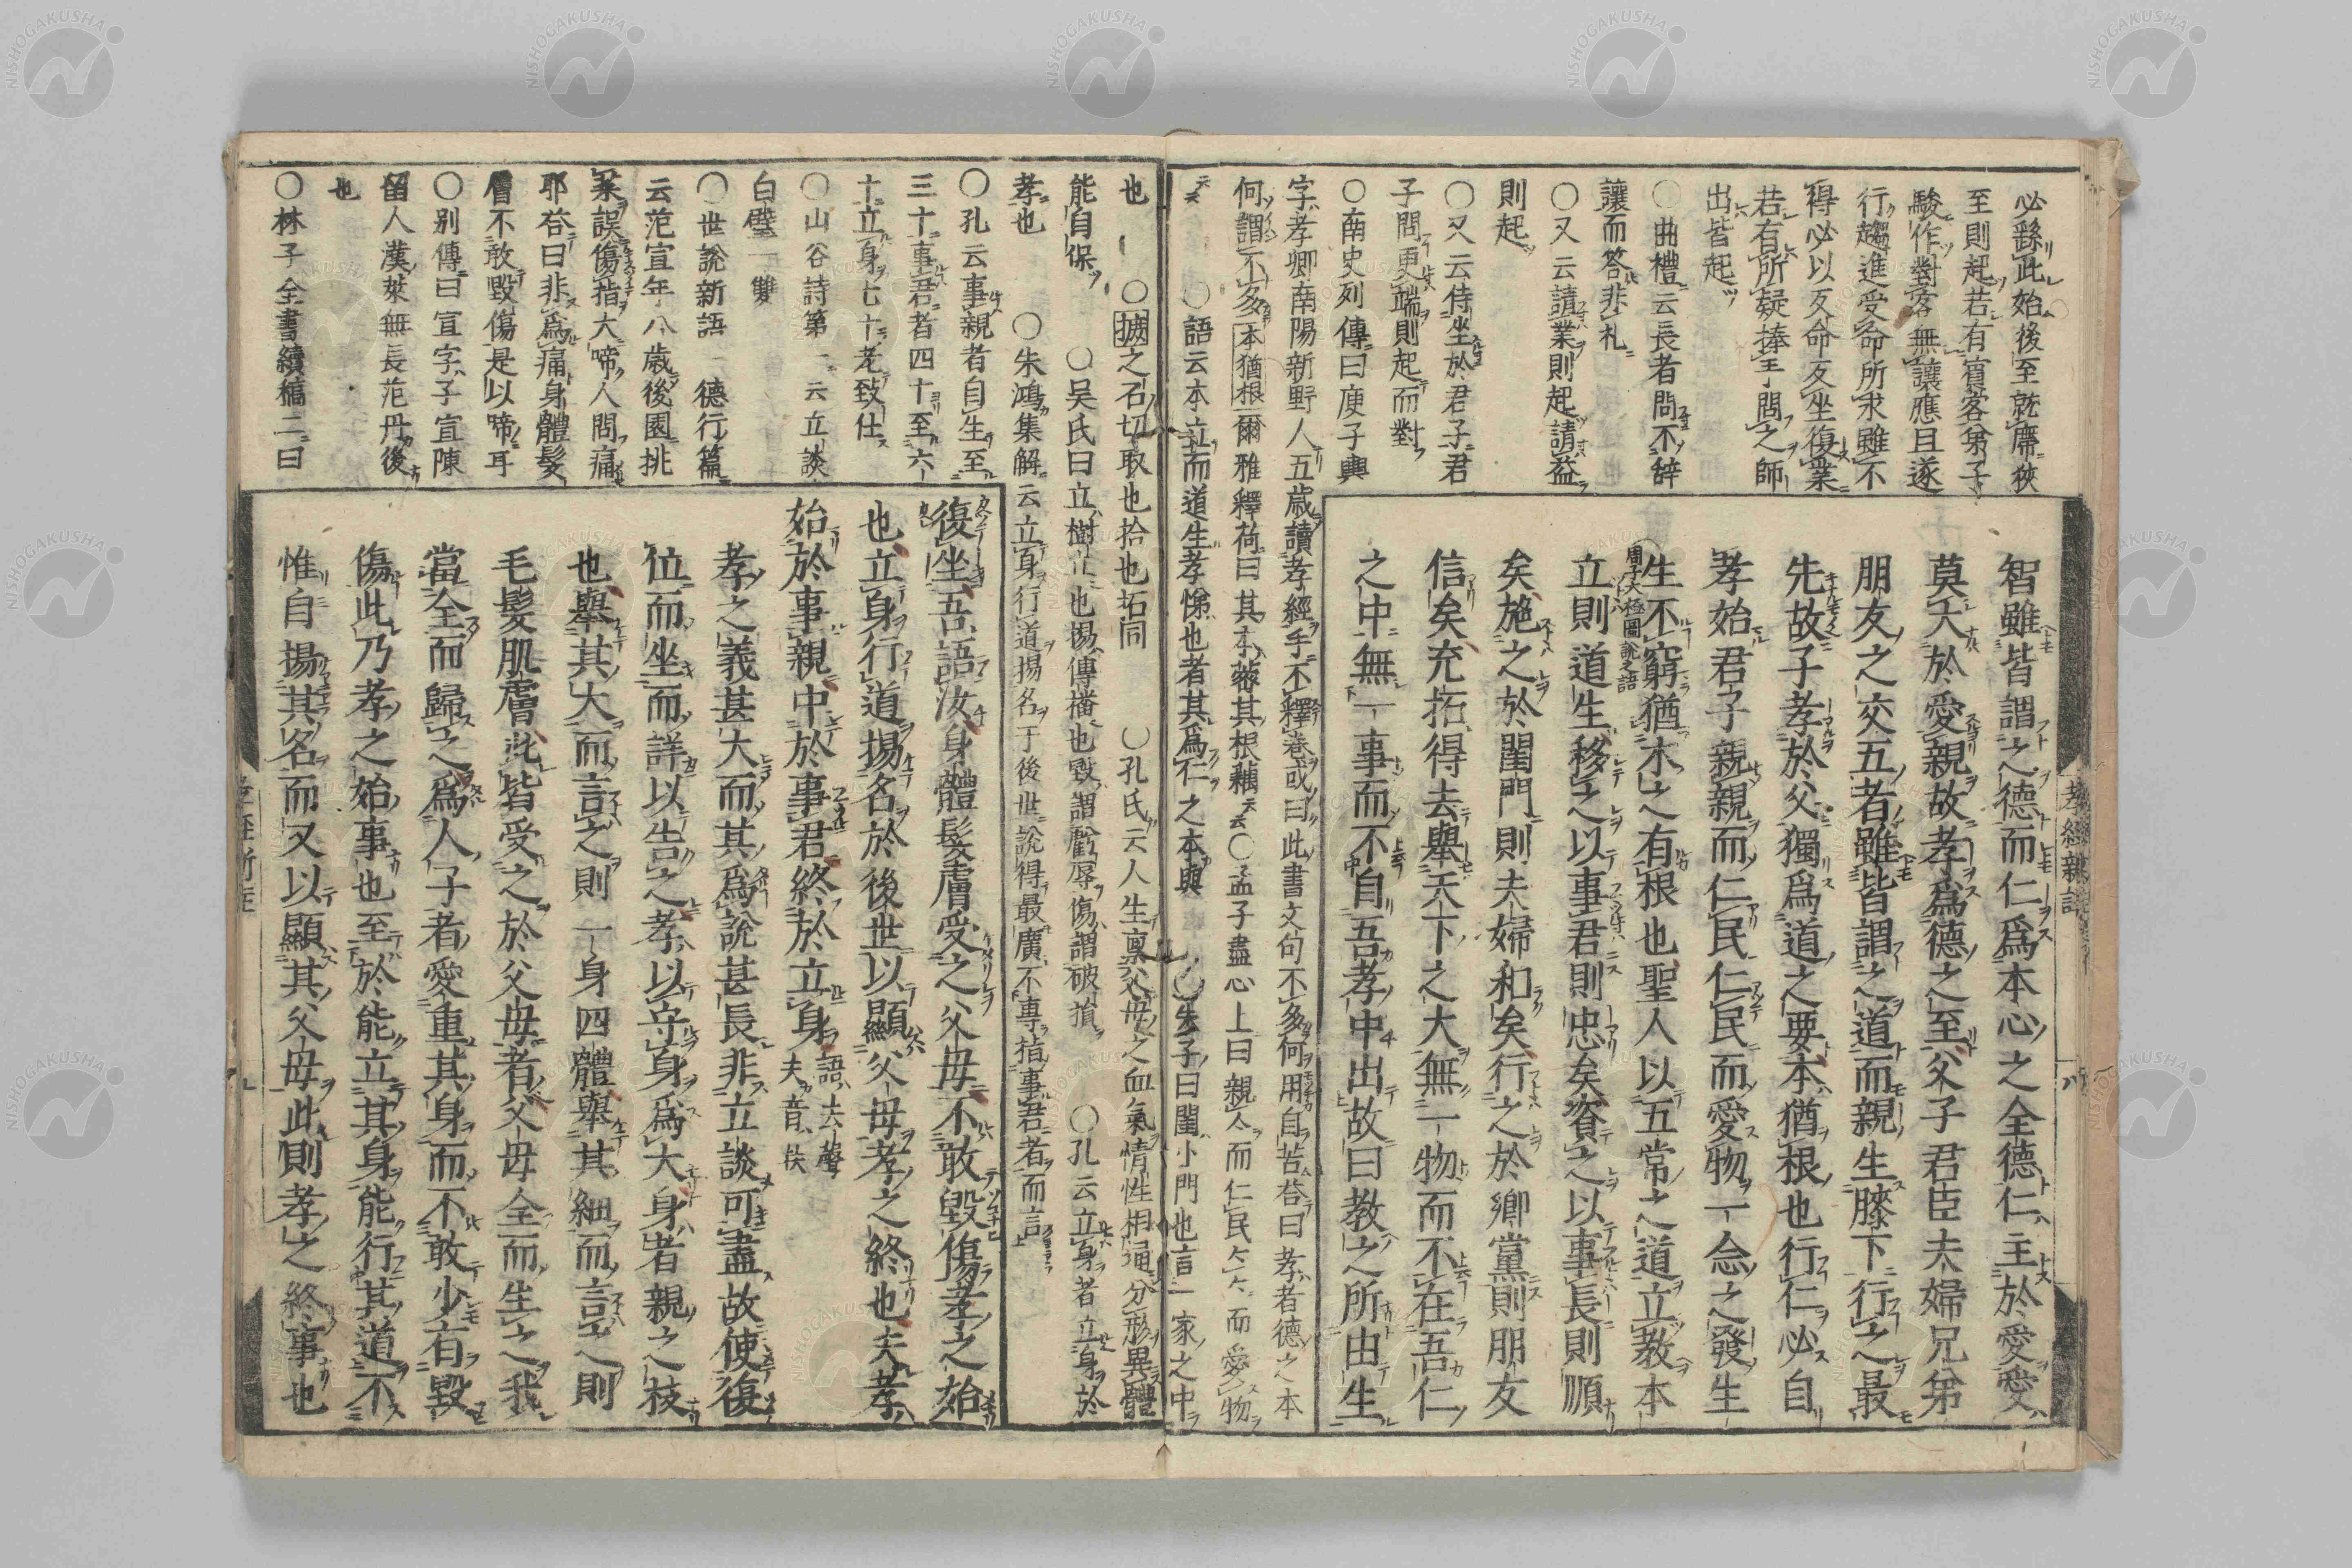 必繇此始後至就席狹
至則起若有賓客弟子
駿作對客無讓應且遂
行趨進受命所求雖不
得必以反命反坐復業
若有所疑捧手問之師
出皆起
○曲禮云長者問不辭
讓而答非礼
○又云請業則起請益
則起
○又云侍坐於君子君
子問更端則起而對
○南史列傳曰庾子輿
字孝卿南陽新野人五歳讀孝經手不釋卷或曰此書文句不多何用自苦荅曰孝者德之本
何謂不多 本猶根 爾雅釋荷曰其本蔤其根藕云云○孟子盡心上曰親々而仁民々々而愛物
云云 ○語云本立而道生孝悌也者其爲仁之本與 ○朱子曰閨小門也言一家之中
智雖皆謂之德而仁爲本心之全德仁主於愛愛
莫大於愛親故孝爲德之至父子君臣夫婦兄弟
朋友之交五者雖皆謂之道而親生膝下行之最
先故子孝於父獨爲道之要本猶根也行仁必自
孝始君子親親而仁民仁民而愛物一念之發生
生不窮猶木之有根也聖人以五常之道立教本
周子大極圖說之語
立則道生移之以事君則忠矣資之以事長則順
矣施之於閨門則夫婦和矣行之於鄉黨則朋友
信矣充拓得去舉天下之大無一物而不在吾仁
之中無一事而不自吾孝中出故曰教之所由生
孝經新註
八
也 ○摭之石切取也拾也拓同 ○孔氏云人生稟父母之血氣情性相通分形異體
能自保 ○吳氏曰立樹立也揚傳播也毀謂虧辱傷謂破損 ○孔云立身者立身於
孝也 ○朱鴻集解云立身行道揚名于後世說得最廣不專指事君者而言
○孔云事親者自生至
三十事君者四十至六
十立身七十老致仕
○山谷詩第一云立談
白璧一雙
○世說新語一德行篇
云范宣年八歳後園挑
菜誤傷指大啼人問痛
耶荅曰非爲痛身體髮
膚不敢毀傷是以啼耳
○別傳曰宣字子宣陳
留人漢萊蕪長范丹後
也
○林子全書續稿二曰
復坐吾語汝身體髮膚受之父母不敢毀傷孝之始
也立身行道揚名於後世以顯父母孝之終也夫孝
始於事親中於事君終於立身 語去聲 夫音扶
孝之義甚大而其爲說甚長非立談可盡故使復
位而坐而詳以告之孝以守身爲大身者親之枝
也舉其大而言之則一身四體舉其細而言之則
毛髮肌膚此皆受之於父母者父母全而生之我
當全而歸之爲人子者愛重其身而不敢少有毀
傷此乃孝之始事也至於能立其身能行其道不
惟自揚其名而又以顯其父母此則孝之終事也
NISHOGAKUSHA